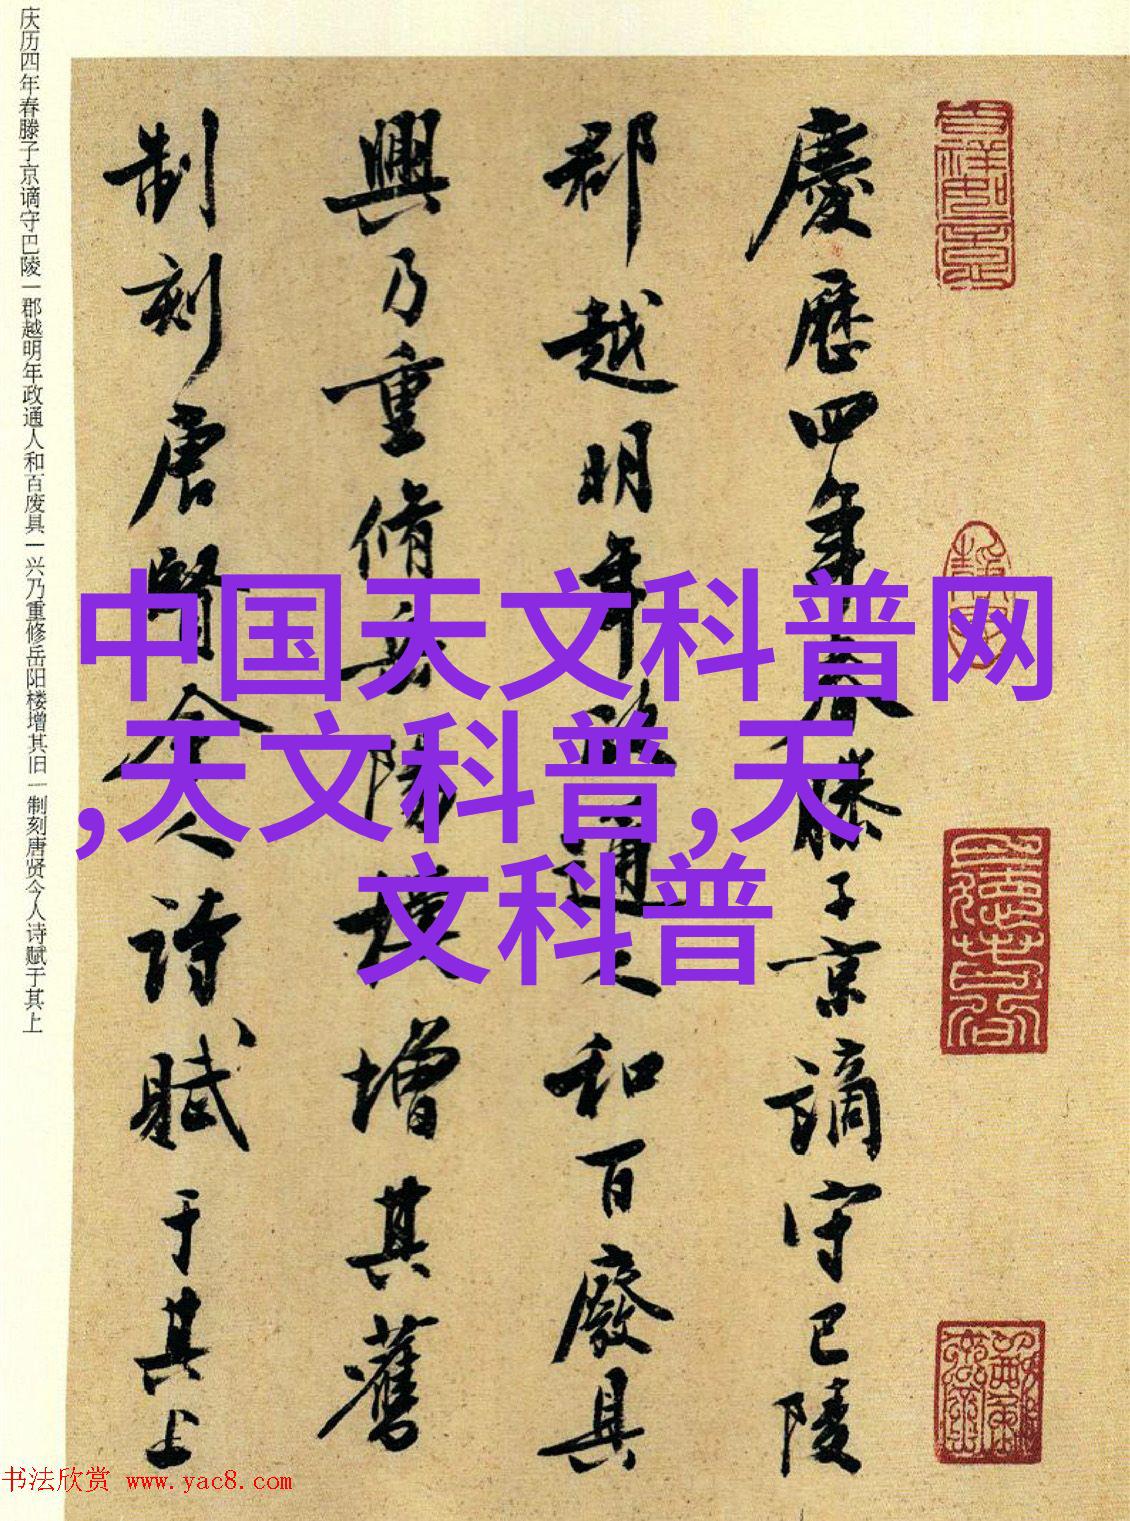 庆历四年春滕子京谪守巴陵一郡越明年政通人和百废具一兴乃重修岳阳楼增其旧一制刻唐贤今人诗赋于其上
慶曆四年春滕子京謫守巴陵
郡越明年政通人和百廢具
興乃重脩岳陽樓增其舊
制刻唐賢今人詩賦于其上
中国天文科普网
,天文科普,天
文科普
书法欣赏 www.yac8.com